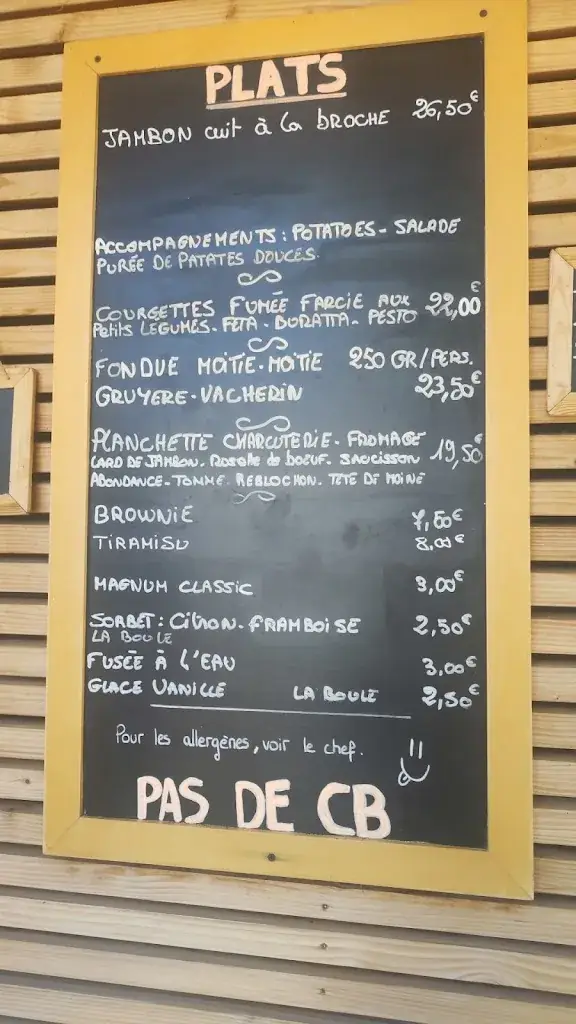 PLATS
JAMBON cuit à la BROCHE 26,50€
ACCOMPAGNEMENTS : POTATOES - SALADE
PURÉE DE PATATES DOUCES.
COURGETTES FUMÉE FARCIE AUX 22,00€
Petits LEGUMES - FETA - BURATTA - PESTO
FONDUE MOITIE-MOITIE 250 GR/PERS.
GRUYERE - VACHERIN 23,50€
PLANCHETTE CHARCUTERIE - FROMAGE 19,50€
LARD DE JAMBON. Rosette de boeuf. SAUCISSON
ABONDANCE - TOMME. REBLOCHON. TETE DE MOINE
BROWNIE 7,50€
TIRAMISU 8,00€
MAGNUM CLASSIC 3,00€
SORBET : Citron - FRAMBOISE 2,50€
LA BOULE
FUSÉE À L'EAU 3,00€
GLACE VANILLE LA BOULE 2,50€
Pour les allergènes, voir le chef.
PAS DE CB